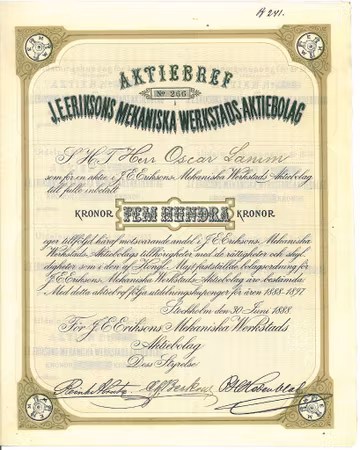 A 241.
AKTIEBREF
No 266
i
J. E. ERIKSONS MEKANISKA WERKSTADS-AKTIEBOLAG
S. H. T. Herr Oscar Lamm
som för en aktie i J. E. Eriksons Mekaniska Werkstads Aktiebolag
till fullo inbetalt
KRONOR FEM HUNDRA KRONOR
eger till följd häraf motsvarande andel i J. E. Eriksons Mekaniska
Werkstads Aktiebolags tillhörigheter med de rättigheter och skyl-
digheter som i den af Kongl. Maj:t fastställda bolagsordning för
J. E. Eriksons Mekaniska Werkstads Aktiebolag äro bestämda
Med detta aktiebref följa utdelningskuponger för åren 1888-1897
Stockholm den 30 Juni 1888.
För J. E. Eriksons Mekaniska Werkstads
Aktiebolag
Dess Styrelse